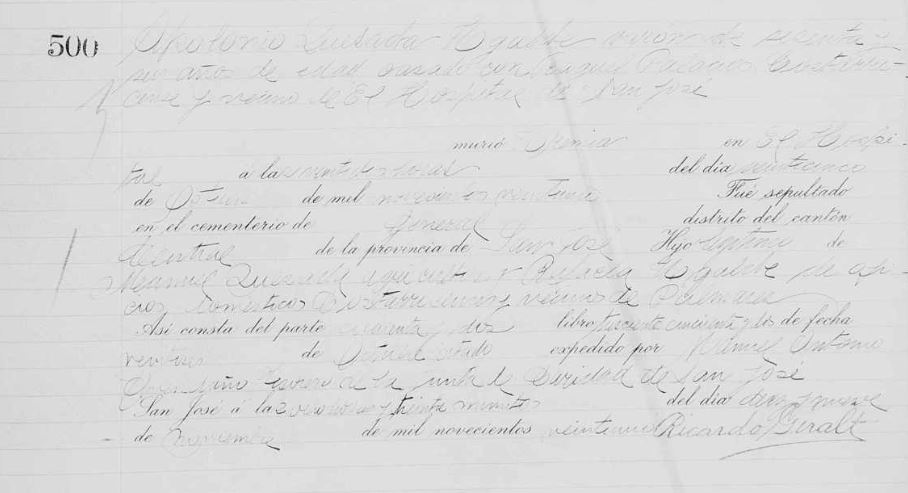 500 Apolonio Quesada Ugalde varón de sesenta y
un años de edad casado con Palacios Costarri-
cense y vecino de El Hospital de San José
murió Uremia en El Hospi-
tal á las horas del dia veinticinco
de Octubre de mil novecientos veintiuno Fué sepultado
en el cementerio de General distrito del cantón
Central de la provincia de San José Hijo legítimo de
Manuel Quesada agricultor y Rafaela Ugalde de ofi-
cios domésticos Costarricenses y vecinos de Palmares
Así consta del parte cuarenta y dos libro trescientos cincuenta y dos de fecha
veintiseis de Octubre citado expedido por Manuel Antonio
de la Junta de Caridad de San José
San José á las horas y treinta minutos del dia diez y nueve
de Noviembre de mil novecientos veintiuno Ricardo Giralt